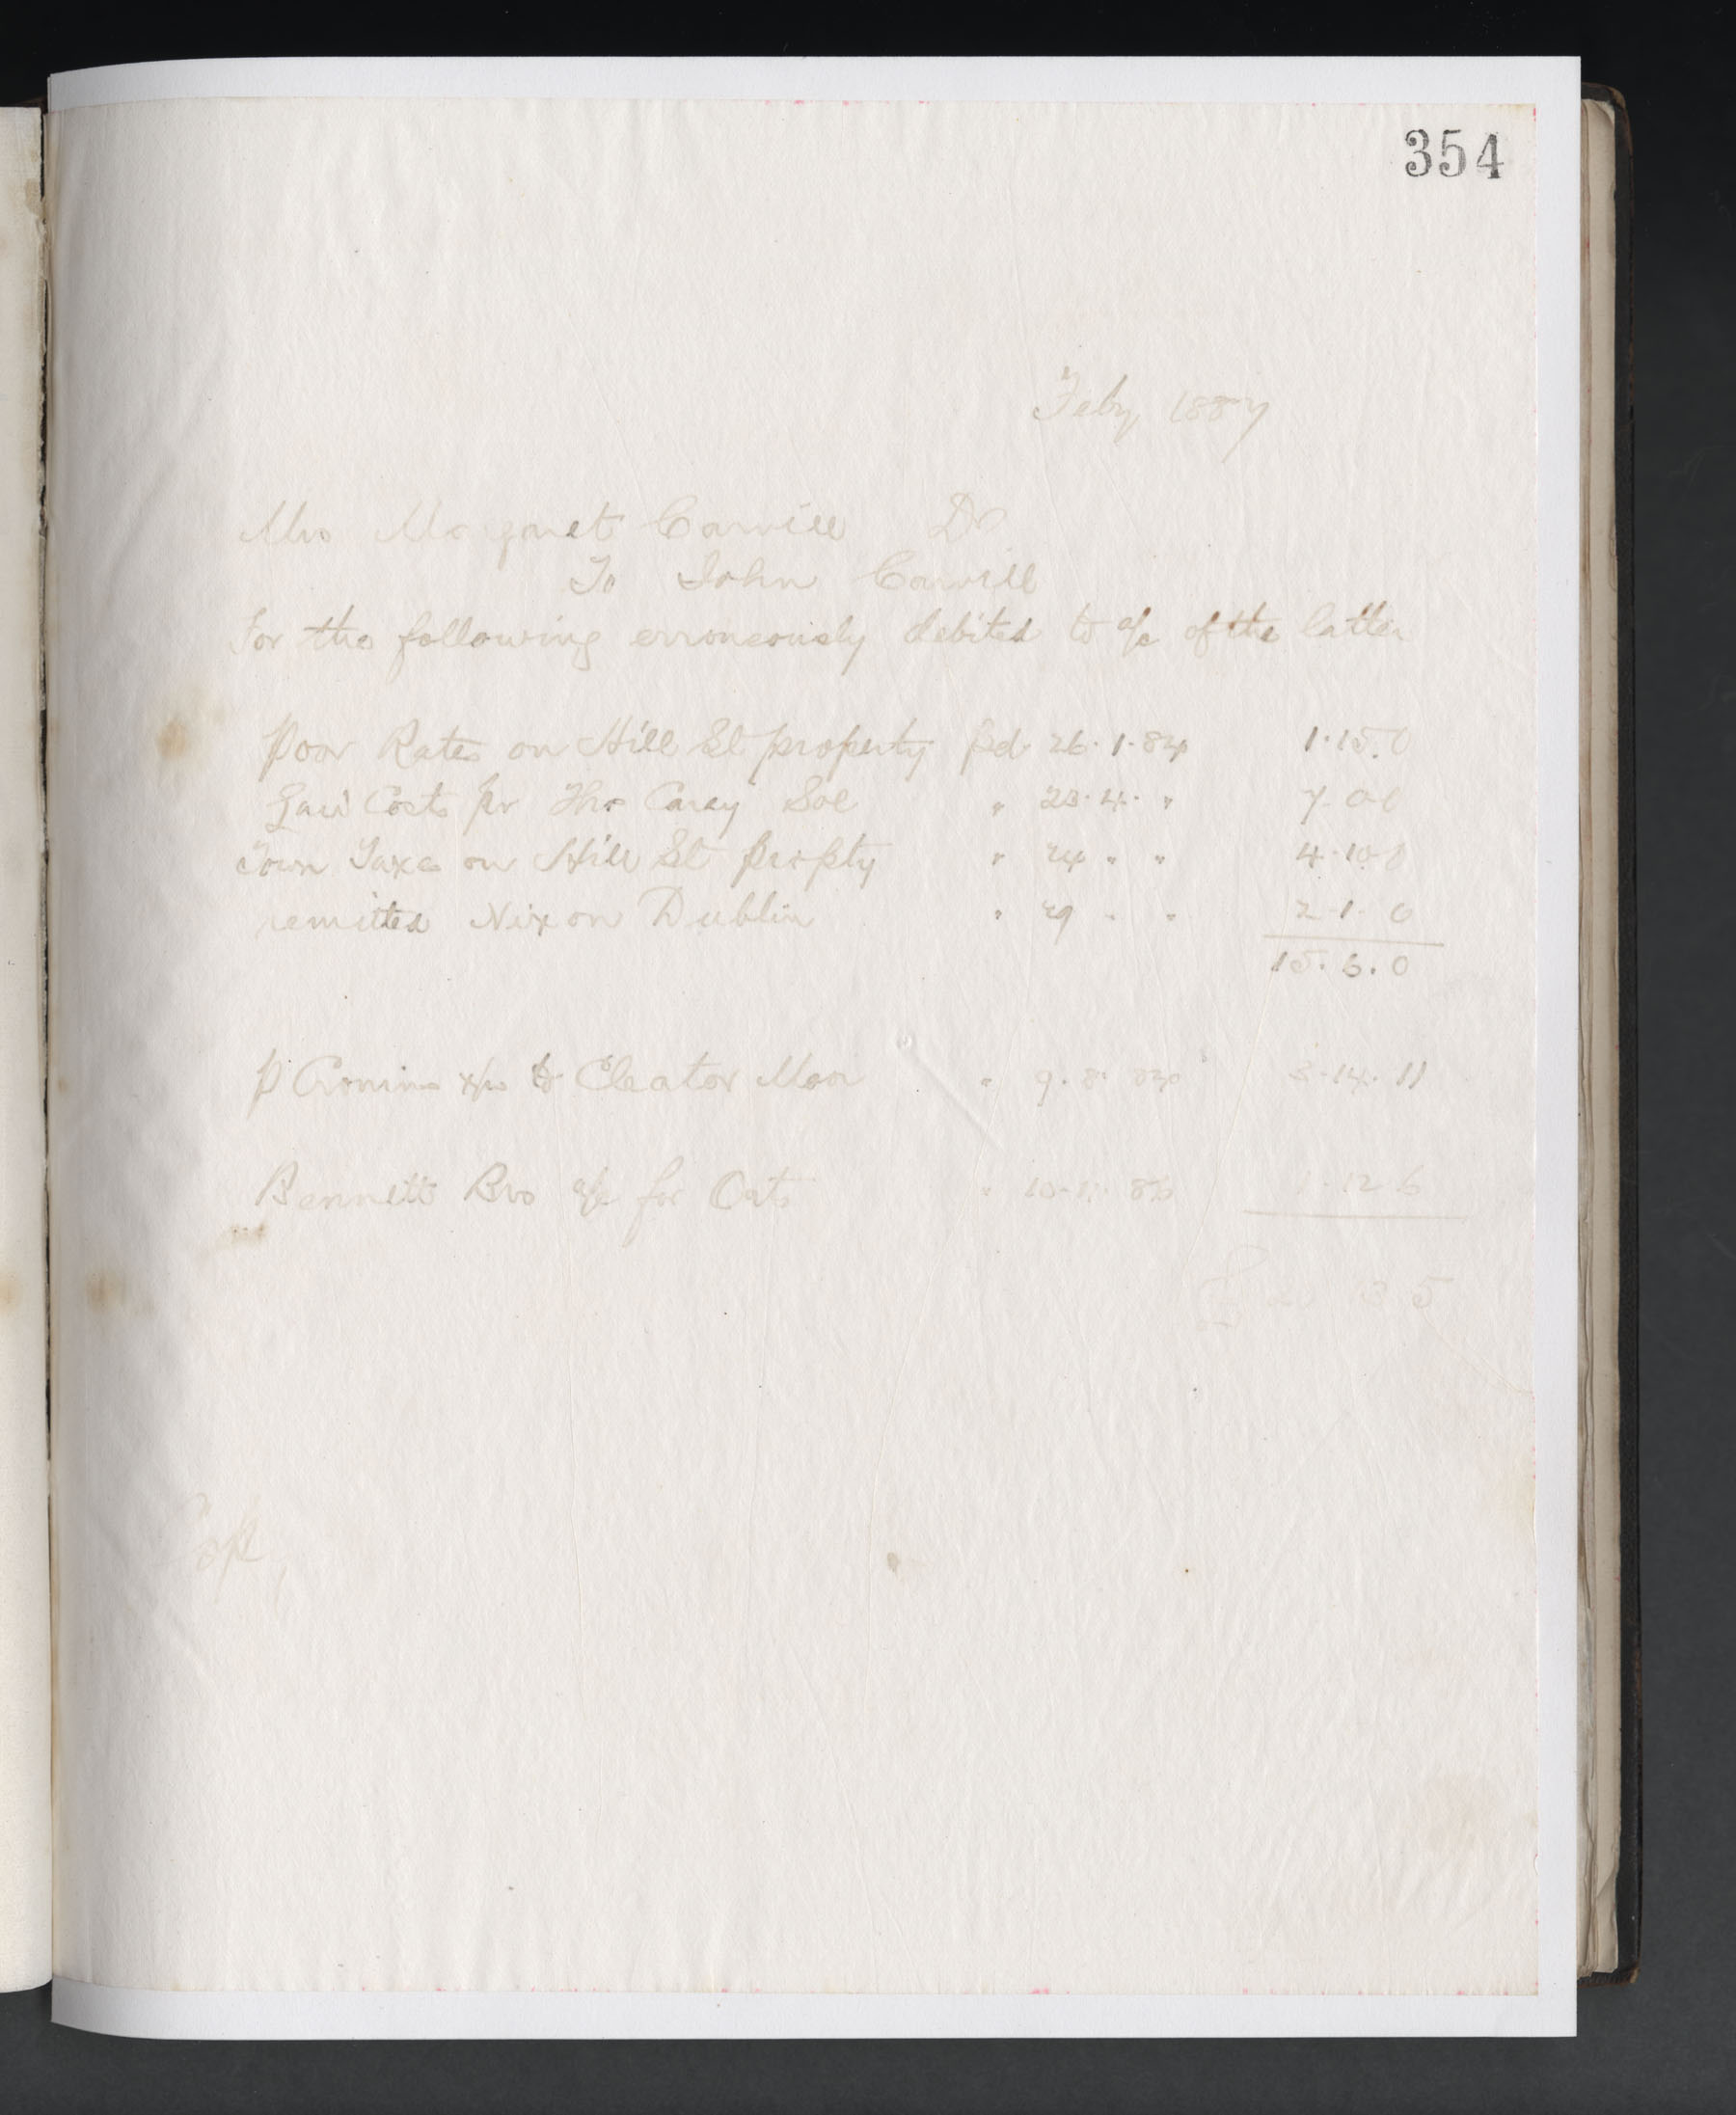 354
Feby 1887
Mrs Margaret Carvill Dr
To John Carvill
For the following erroneously debited to a/c of the latter
Poor Rates on Hill St property pd 26.1.84 1.15.0
Law Costs pr Thos Carey Sol " 23.4. " 7.0.0
Town Taxes on Hill St propty " 24 " " 4.10.0
remitted Nixon Dublin " 29 " " 2.1.0
15.6.0
P Cronin to Cleator Moor " 9.8. 3.14.11
Bennett Bros a/c for Oats " 10.11.86 1.12.6
£ 20 13 5